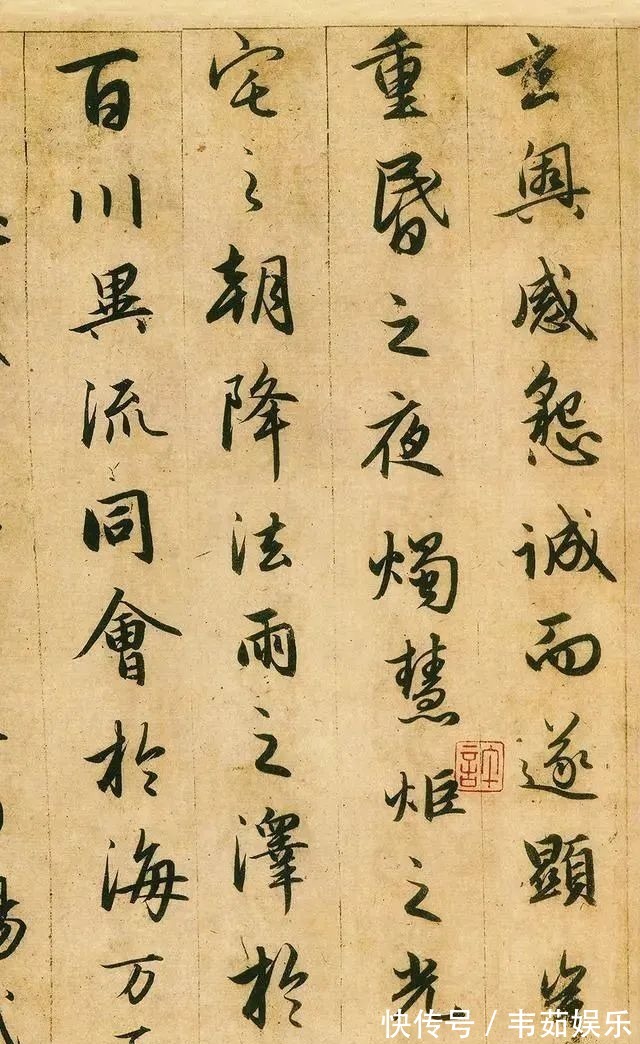 玄奥感懇誠而遂顯
重昏之夜燭慧炬之光
宅之朝降法雨之澤於
百川異流同會於海万
快传号/韦茹娱乐